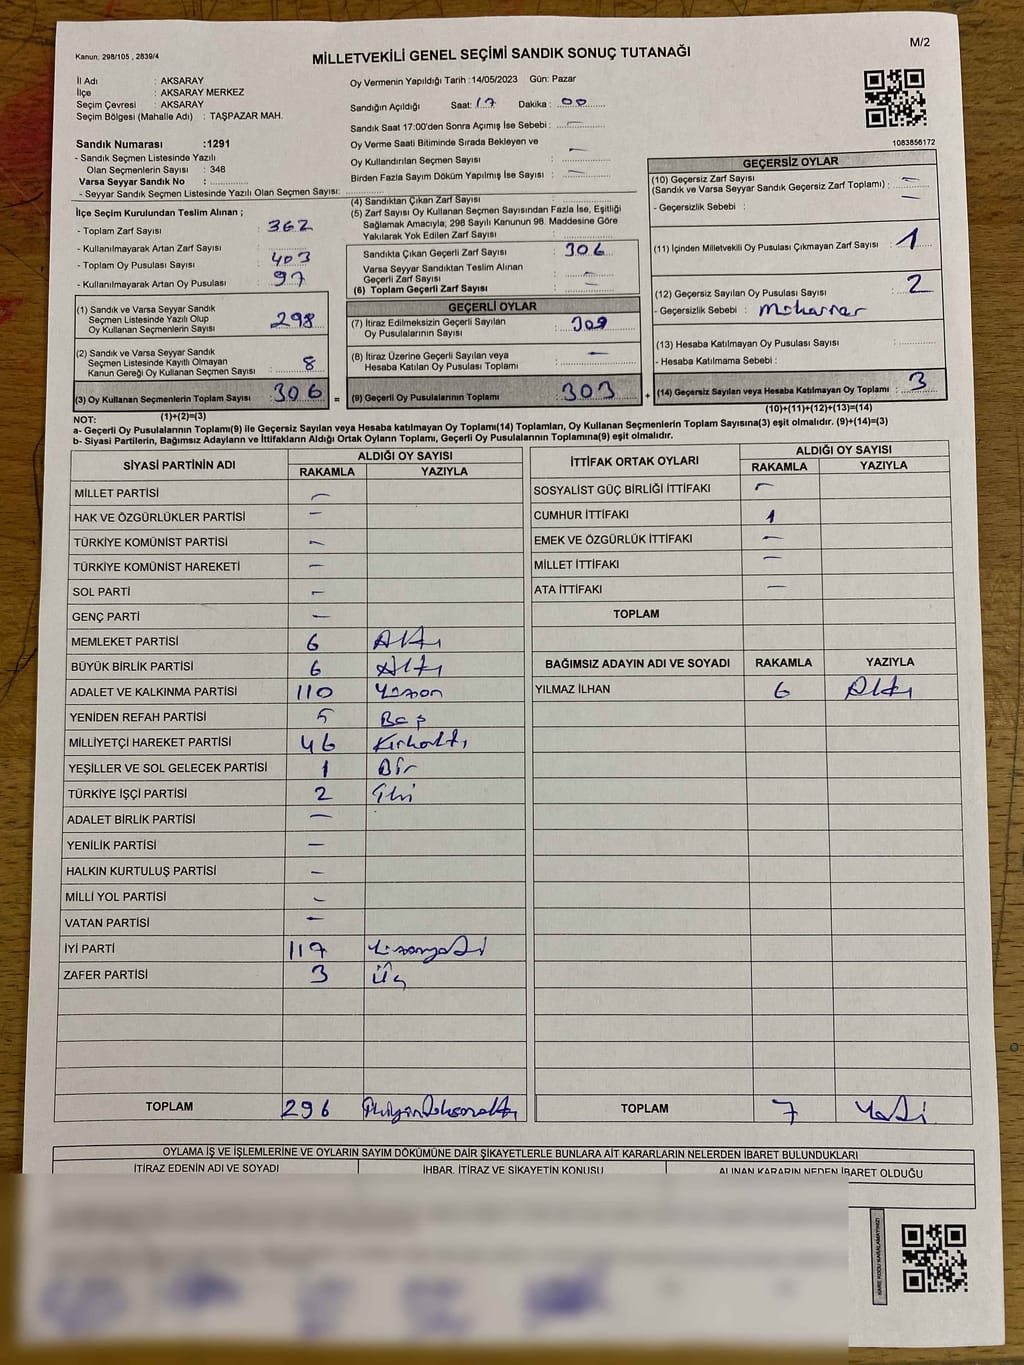 M/2
Kanun: 298/105 , 2839/4
MİLLETVEKİLİ GENEL SEÇİMİ SANDIK SONUÇ TUTANAĞI
İl Adı : AKSARAY
İlçe : AKSARAY MERKEZ
Seçim Çevresi : AKSARAY
Seçim Bölgesi (Mahalle Adı) : TAŞPAZAR MAH.
Sandık Numarası :1291
- Sandık Seçmen Listesinde Yazılı
Olan Seçmenlerin Sayısı : 348
Varsa Seyyar Sandık No :
- Seyyar Sandık Seçmen Listesinde Yazılı Olan Seçmen Sayısı:
Oy Vermenin Yapıldığı Tarih :14/05/2023 Gün: Pazar
Sandığın Açıldığı Saat: 17 Dakika : 00
Sandık Saat 17:00'den Sonra Açımış İse Sebebi : —
Oy Verme Saati Bitiminde Sırada Bekleyen ve
Oy Kullandırılan Seçmen Sayısı : —
Birden Fazla Sayım Döküm Yapılmış İse Sayısı : —
1083856172
İlçe Seçim Kurulundan Teslim Alınan ;
- Toplam Zarf Sayısı : 362
- Kullanılmayarak Artan Zarf Sayısı :
- Toplam Oy Pusulası Sayısı : 403
- Kullanılmayarak Artan Oy Pusulası : 97
(1) Sandık ve Varsa Seyyar Sandık
Seçmen Listesinde Yazılı Olup
Oy Kullanan Seçmenlerin Sayısı : 298
(2) Sandık ve Varsa Seyyar Sandık
Seçmen Listesinde Kayıtlı Olmayan
Kanun Gereği Oy Kullanan Seçmen Sayısı : 8
(3) Oy Kullanan Seçmenlerin Toplam Sayısı : 306 =
(1)+(2)=(3)
(4) Sandıktan Çıkan Zarf Sayısı :
(5) Zarf Sayısı Oy Kullanan Seçmen Sayısından Fazla İse, Eşitliği
Sağlamak Amacıyla; 298 Sayılı Kanunun 98. Maddesine Göre
Yakılarak Yok Edilen Zarf Sayısı :
Sandıkta Çıkan Geçerli Zarf Sayısı : 306
Varsa Seyyar Sandıktan Teslim Alınan
Geçerli Zarf Sayısı : —
(6) Toplam Geçerli Zarf Sayısı : —
GEÇERLİ OYLAR
(7) İtiraz Edilmeksizin Geçerli Sayılan
Oy Pusulalarının Sayısı :
(8) İtiraz Üzerine Geçerli Sayılan veya
Hesaba Katılan Oy Pusulası Toplamı : —
(9) Geçerli Oy Pusulalarının Toplamı : 303 +
GEÇERSİZ OYLAR
(10) Geçersiz Zarf Sayısı
(Sandık ve Varsa Seyyar Sandık Geçersiz Zarf Toplamı) : —
- Geçersizlik Sebebi : —
(11) İçinden Milletvekili Oy Pusulası Çıkmayan Zarf Sayısı : 1
(12) Geçersiz Sayılan Oy Pusulası Sayısı : 2
- Geçersizlik Sebebi :
(13) Hesaba Katılmayan Oy Pusulası Sayısı :
- Hesaba Katılmama Sebebi :
(14) Geçersiz Sayılan veya Hesaba Katılmayan Oy Toplamı : 3
(10)+(11)+(12)+(13)=(14)
NOT:
a- Geçerli Oy Pusulalarının Toplamı(9) ile Geçersiz Sayılan veya Hesaba katılmayan Oy Toplamı(14) Toplamları, Oy Kullanan Seçmenlerin Toplam Sayısına(3) eşit olmalıdır. (9)+(14)=(3)
b- Siyasi Partilerin, Bağımsız Adayların ve İttifakların Aldığı Ortak Oyların Toplamı, Geçerli Oy Pusulalarının Toplamına(9) eşit olmalıdır.
SİYASİ PARTİNİN ADI ALDIĞI OY SAYISI
RAKAMLA YAZIYLA
MİLLET PARTİSİ —
HAK VE ÖZGÜRLÜKLER PARTİSİ —
TÜRKİYE KOMÜNİST PARTİSİ —
TÜRKİYE KOMÜNİST HAREKETİ —
SOL PARTİ —
GENÇ PARTİ —
MEMLEKET PARTİSİ 6 Altı
BÜYÜK BİRLİK PARTİSİ 6 Altı
ADALET VE KALKINMA PARTİSİ 110 Yüzon
YENİDEN REFAH PARTİSİ 5 Beş
MİLLİYETÇİ HAREKET PARTİSİ 46 Kırkaltı
YEŞİLLER VE SOL GELECEK PARTİSİ 1 Bir
TÜRKİYE İŞÇİ PARTİSİ 2 İki
ADALET BİRLİK PARTİSİ —
YENİLİK PARTİSİ —
HALKIN KURTULUŞ PARTİSİ —
MİLLİ YOL PARTİSİ —
VATAN PARTİSİ —
İYİ PARTİ 117 Yüzonyedi
ZAFER PARTİSİ 3 Üç
TOPLAM 296 İkiyüzdoksanaltı
İTTİFAK ORTAK OYLARI ALDIĞI OY SAYISI
RAKAMLA YAZIYLA
SOSYALİST GÜÇ BİRLİĞİ İTTİFAKI —
CUMHUR İTTİFAKI 1
EMEK VE ÖZGÜRLÜK İTTİFAKI —
MİLLET İTTİFAKI —
ATA İTTİFAKI —
TOPLAM
BAĞIMSIZ ADAYIN ADI VE SOYADI RAKAMLA YAZIYLA
YILMAZ İLHAN 6 Altı
TOPLAM 7 Yedi
OYLAMA İŞ VE İŞLEMLERİNE VE OYLARIN SAYIM DÖKÜMÜNE DAİR ŞİKAYETLERLE BUNLARA AİT KARARLARIN NELERDEN İBARET BULUNDUKLARI
İTİRAZ EDENİN ADI VE SOYADI İHBAR, İTİRAZ VE ŞİKAYETİN KONUSU ALINAN KARARIN NEDEN İBARET OLDUĞU
KARE KODU KARALAMAYINIZ!